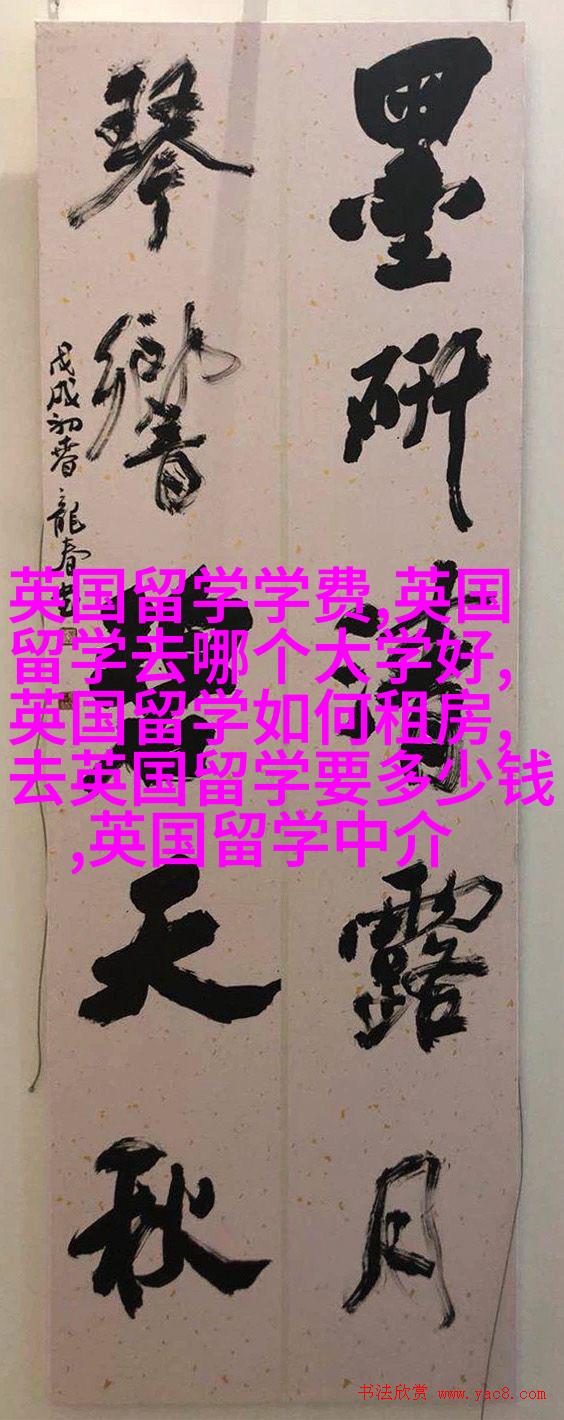 墨研清露月
琴響碧天秋
戊戌初春龍春
英国留学学费,英国
留学去哪个大学好,
英国留学如何租房,
去英国留学要多少钱
,英国留学中介
书法欣赏 www.yac8.com